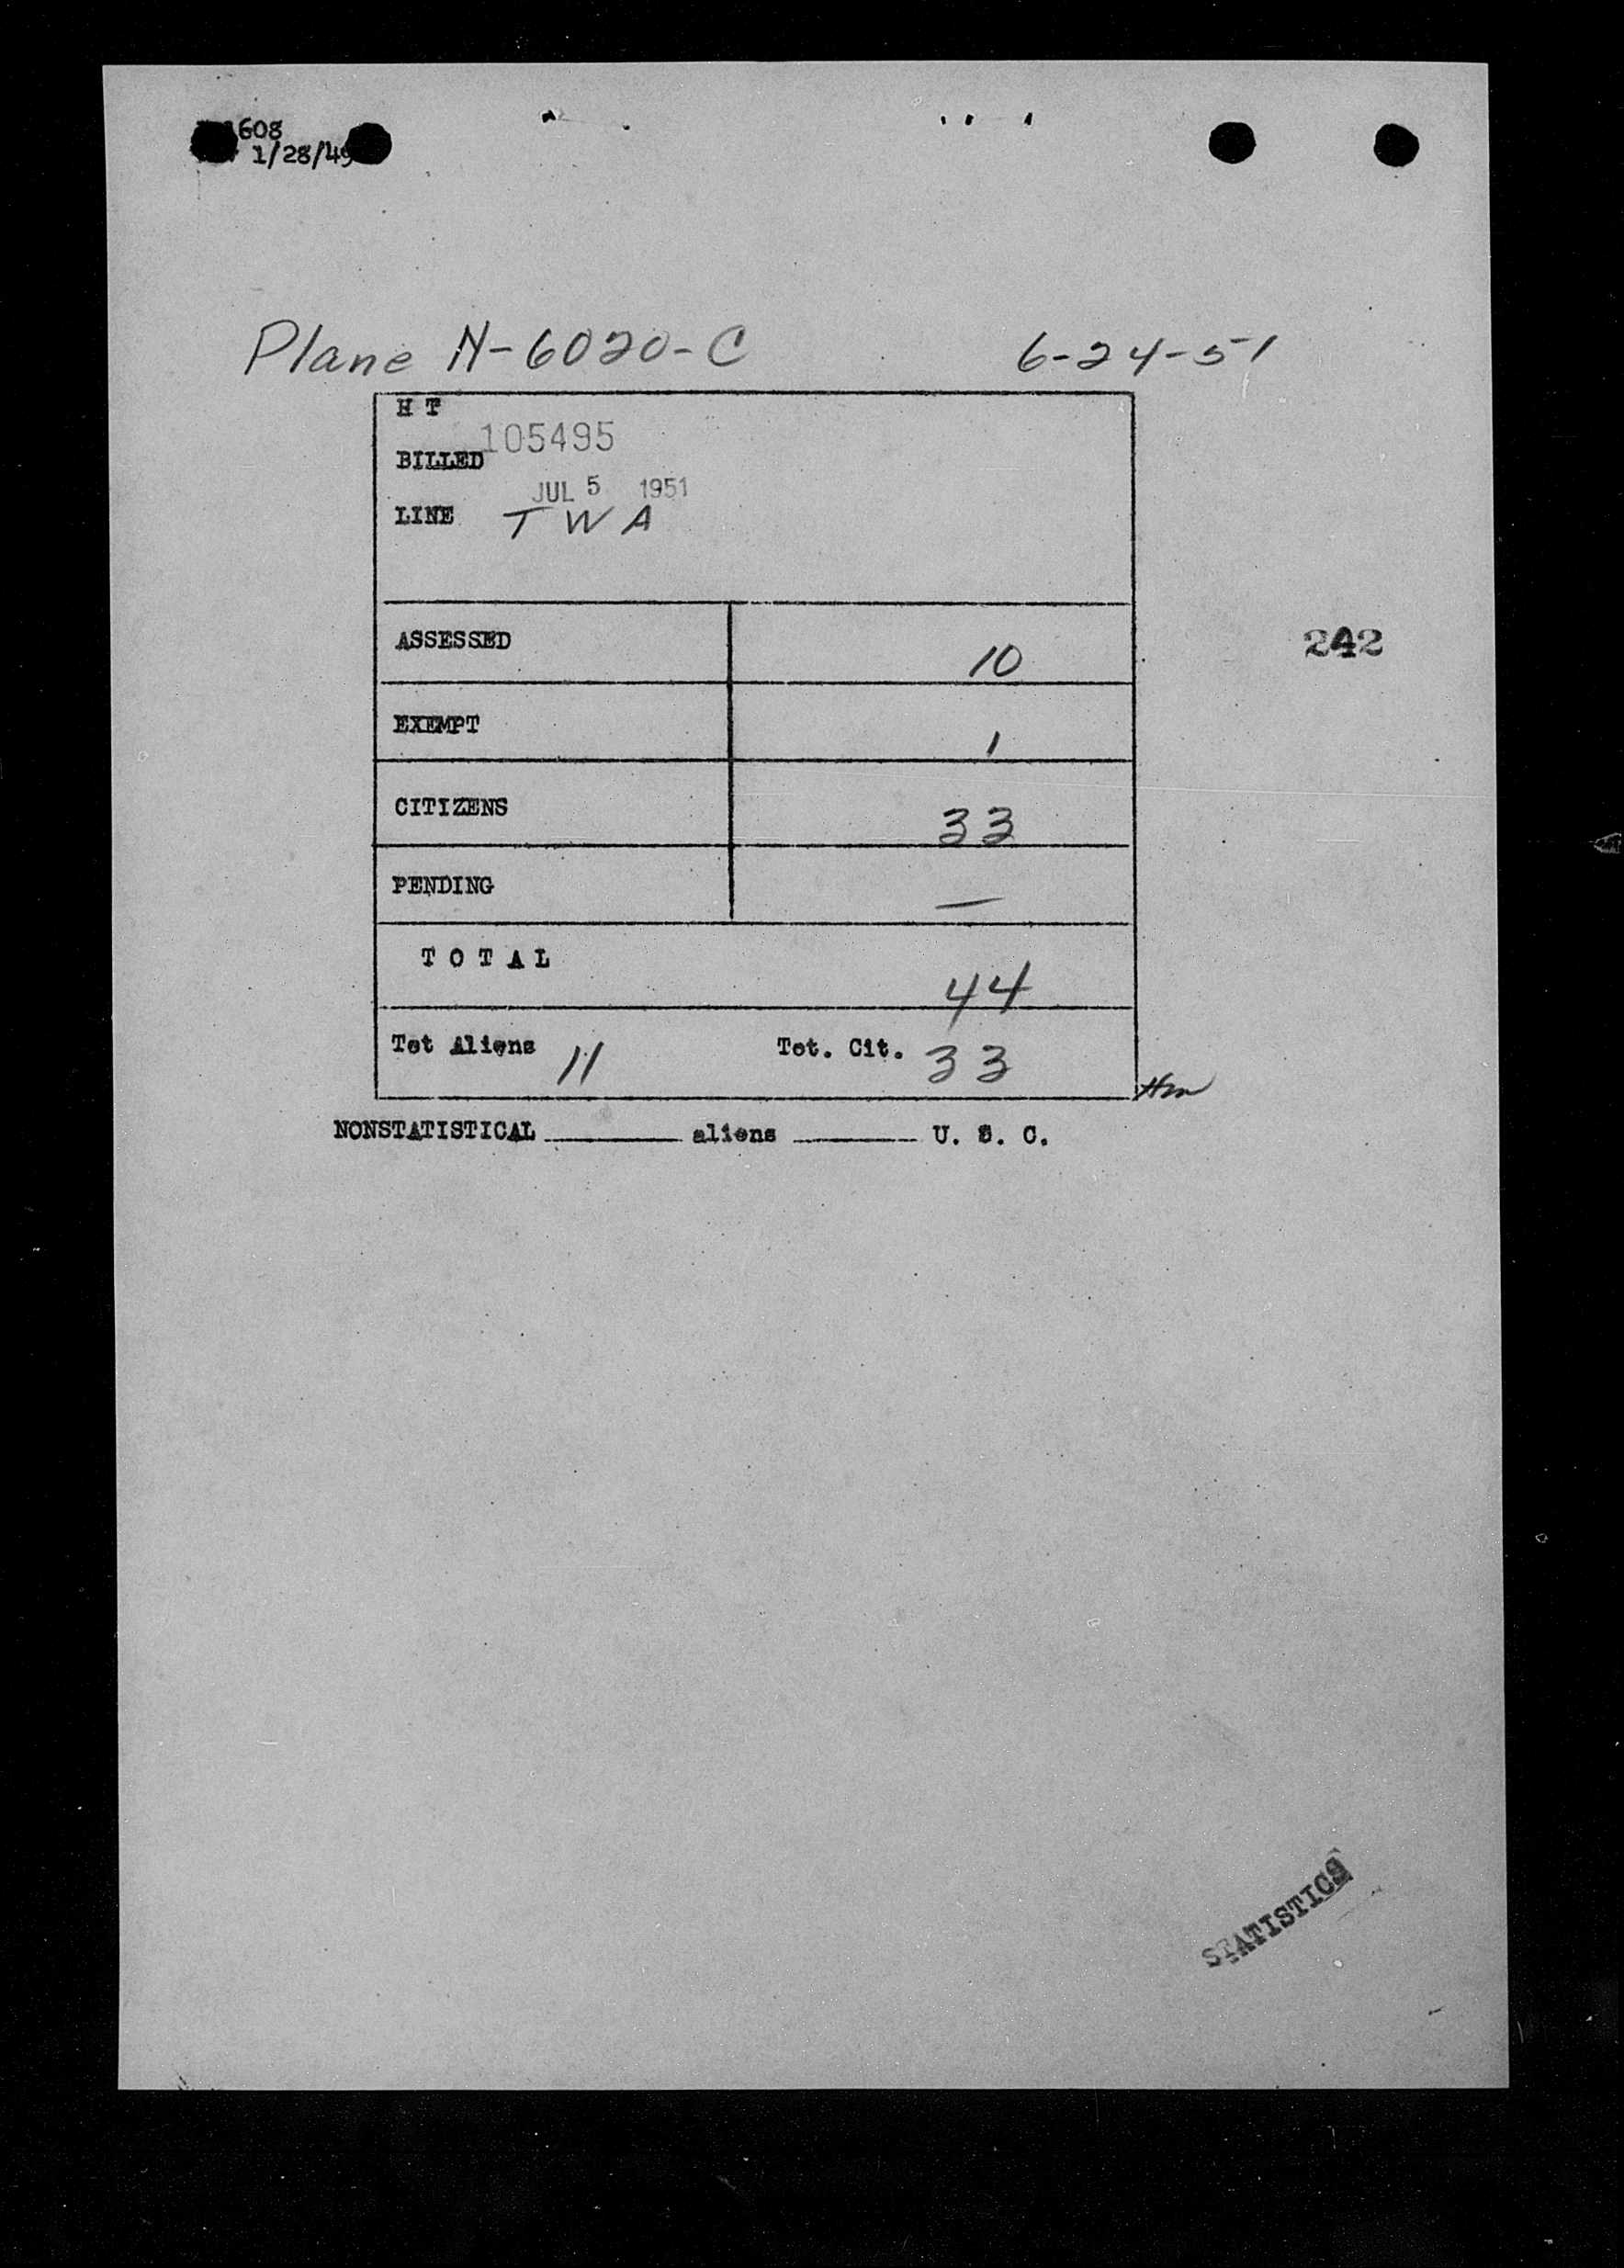 608
1/28/49
Plane N-6020-C 6-24-51
H T
105495
BILLED
JUL 5 1951
LINE T W A
ASSESSED 10
242
EXEMPT 1
CITIZENS 33
PENDING —
T O T A L 44
Tot Aliens 11 Tot. Cit. 33
NONSTATISTICAL ________ aliens ________ U. S. C.
STATISTICS